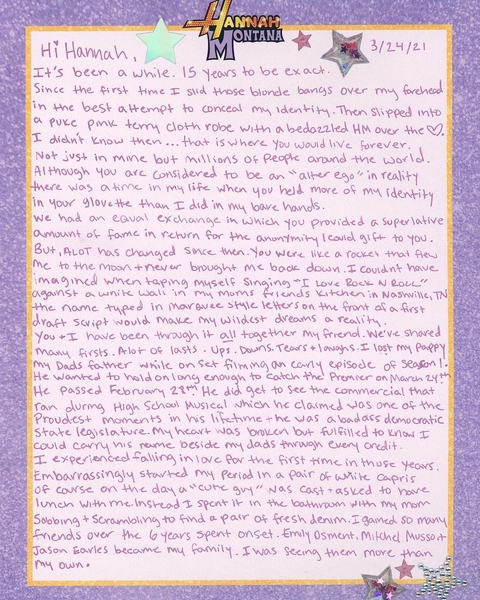 HANNAH
MONTANA
Hi Hannah,
3/24/21
It's been a while. 15 years to be exact.
Since the first time I slid those blonde bangs over my forehead
in the best attempt to conceal my identity. Then slipped into
a puke pink terry cloth robe with a bedazzled HM over the ♡.
I didn't know then ... that is where you would live forever.
Not just in mine but millions of people around the world.
Although you are considered to be an "alter ego" in reality
there was a time in my life when you held more of my identity
in your glovette than I did in my bare hands.
We had an equal exchange in which you provided a superlative
amount of fame in return for the anonymity I could gift to you.
But, ALOT has changed since then. You were like a rocket that flew
me to the moon + never brought me back down. I couldn't have
imagined when taping myself singing "I love Rock N Roll"
against a white wall in my moms friends kitchen in Nashville, TN
the name typed in marquee style letters on the front of a first
draft script would make my wildest dreams a reality.
You + I have been through it all together my friend. We've shared
many firsts. Alot of lasts. Ups. Downs. Tears + laughs. I lost my Pappy
my Dads father while on set filming an early episode of Season 1.
He wanted to hold on long enough to catch the Premier on March 24th
He passed February 28th. He did get to see the commercial that
ran during High School Musical which he claimed was one of the
Proudest moments in his lifetime + he was a badass democratic
state legislature. My heart was broken but fulfilled to know I
could carry his name beside my dads through every credit.
I experienced falling in love for the first time in those years.
Embarrassingly started my period in a pair of white Capris
of course on the day a "cute guy" was cast + asked to have
lunch with me. Instead I spent it in the bathroom with my mom
Sobbing + Scrambling to find a pair of fresh denim. I gained so many
friends over the 6 years spent on set. Emily Osment, Mitchel Musso +
Jason Earles became my family. I was seeing them more than
my own.